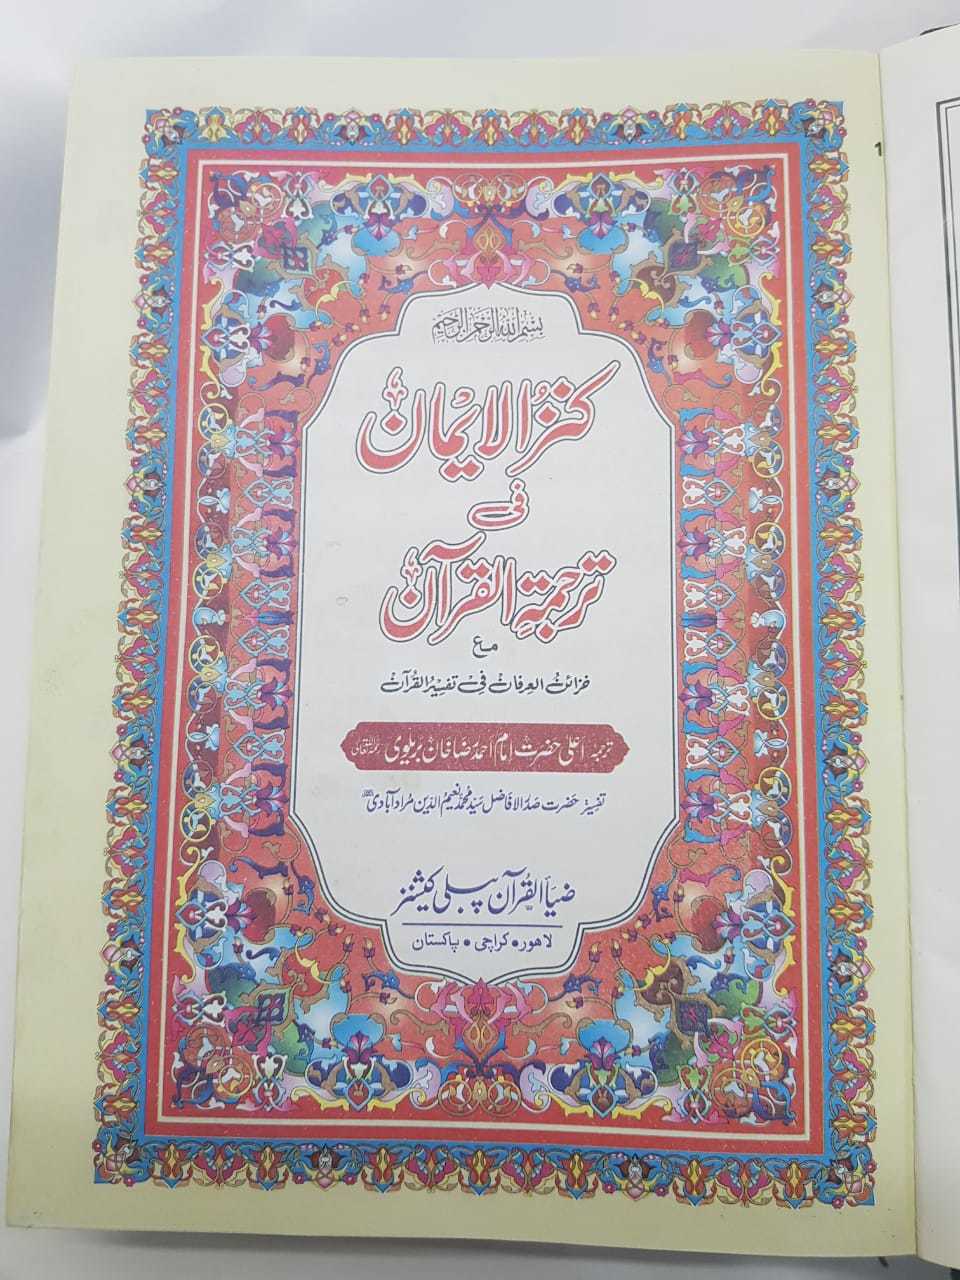 بسم اللہ الرحمن الرحیم
کنز الایمان
فی
ترجمۃ القرآن
مع
خزائن العرفان فی تفسیر القرآن
ترجمہ اعلیٰ حضرت امام احمد رضا خان بریلوی رحمۃ اللہ تعالیٰ
تفسیر حضرت صدر الافاضل سید محمد نعیم الدین مراد آبادی
ضیاء القرآن پبلی کیشنز
لاہور • کراچی • پاکستان
1